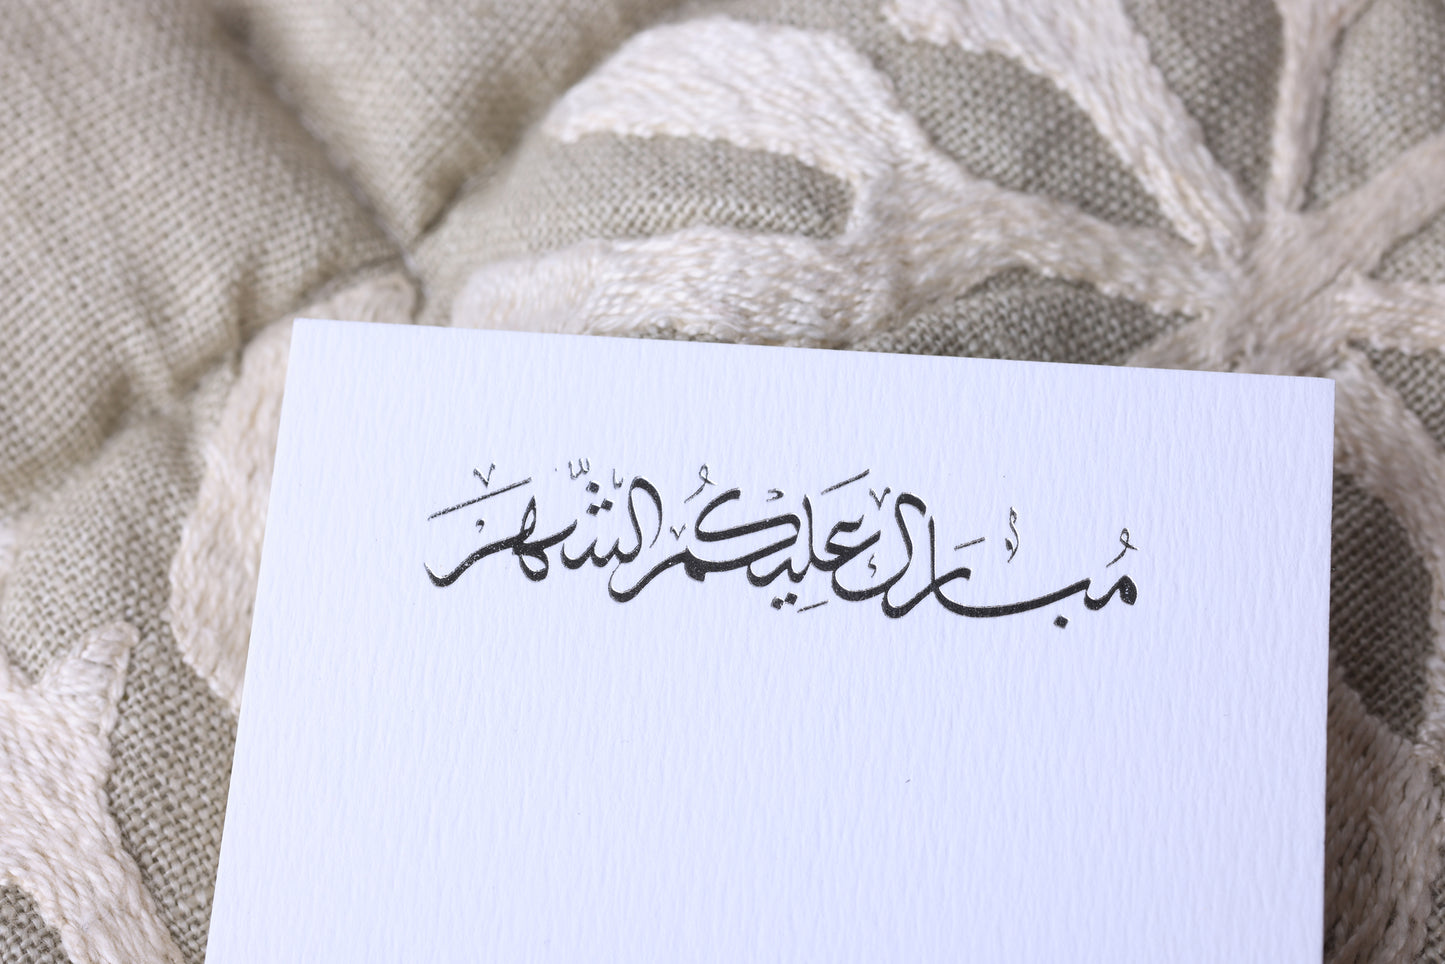 مُبارك عَليكُم الشّهر